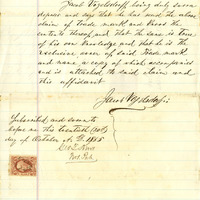 Jacob Vogelsdorff being duly sworn
deposes and says that he has read the above
claim of Trade mark and knows the
contents thereof and that the same is true
of his own knowledge and that he is the
exclusive owner of said Trade mark
and name, a copy of which accompanies
and is attached to said claim and
this affidavit
Jacob Vogelsdorff
Subscribed and sworn to
before me this twentieth (20th)
day of October A.D. 1885
Not. Pub.